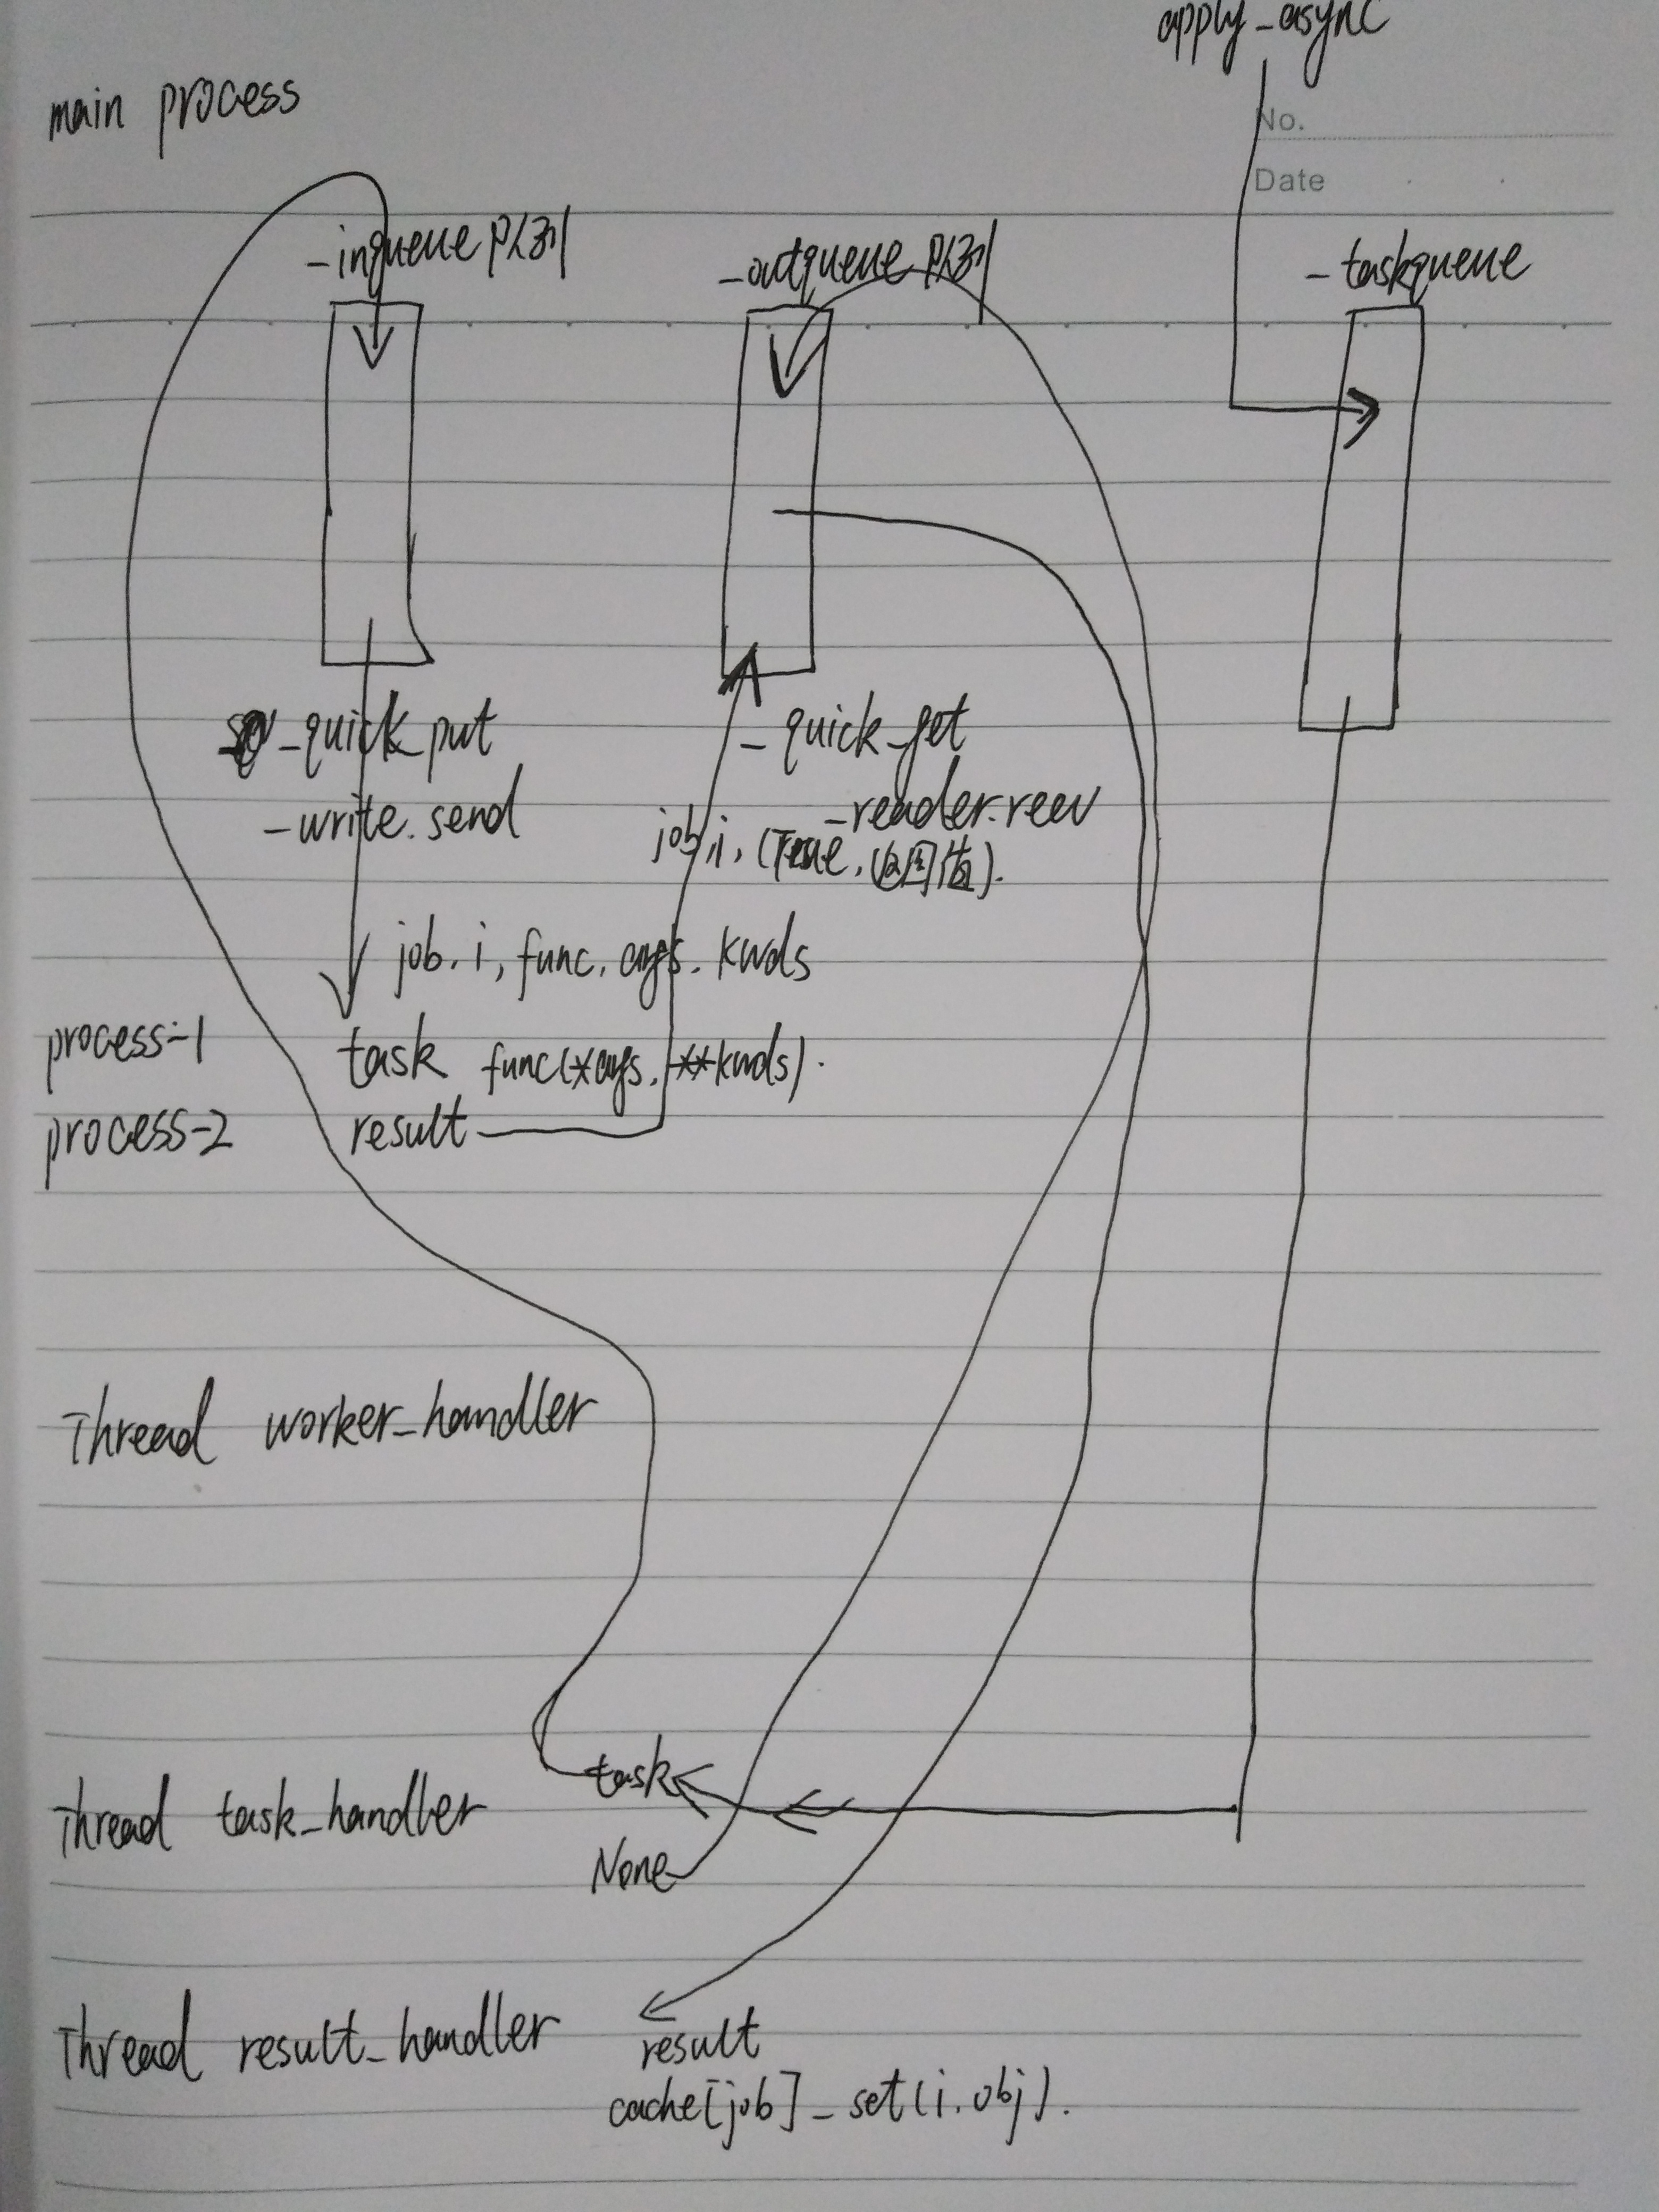 apply_async
main process
No.
Date
_inqueue 队列
_outqueue 队列
_taskqueue
_quick_put
_quick_get
_write.send
_reader.recv
job, i, (True, 返回值).
job, i, func, args, kwds
process-1
task func(*args, **kwds).
process-2
result
Thread worker_handler
task
Thread task_handler
None
Thread result_handler
result
cache[job]_set(i, obj).